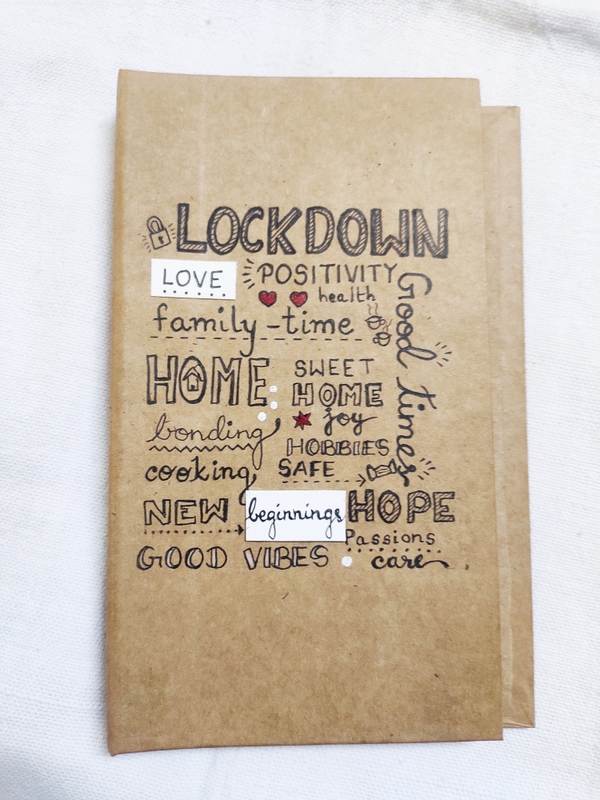 LOCKDOWN
LOVE POSITIVITY
health
family-time
Good times
HOME SWEET
HOME
joy
bonding HOBBIES
cooking SAFE
NEW beginnings HOPE
Passions
GOOD VIBES care